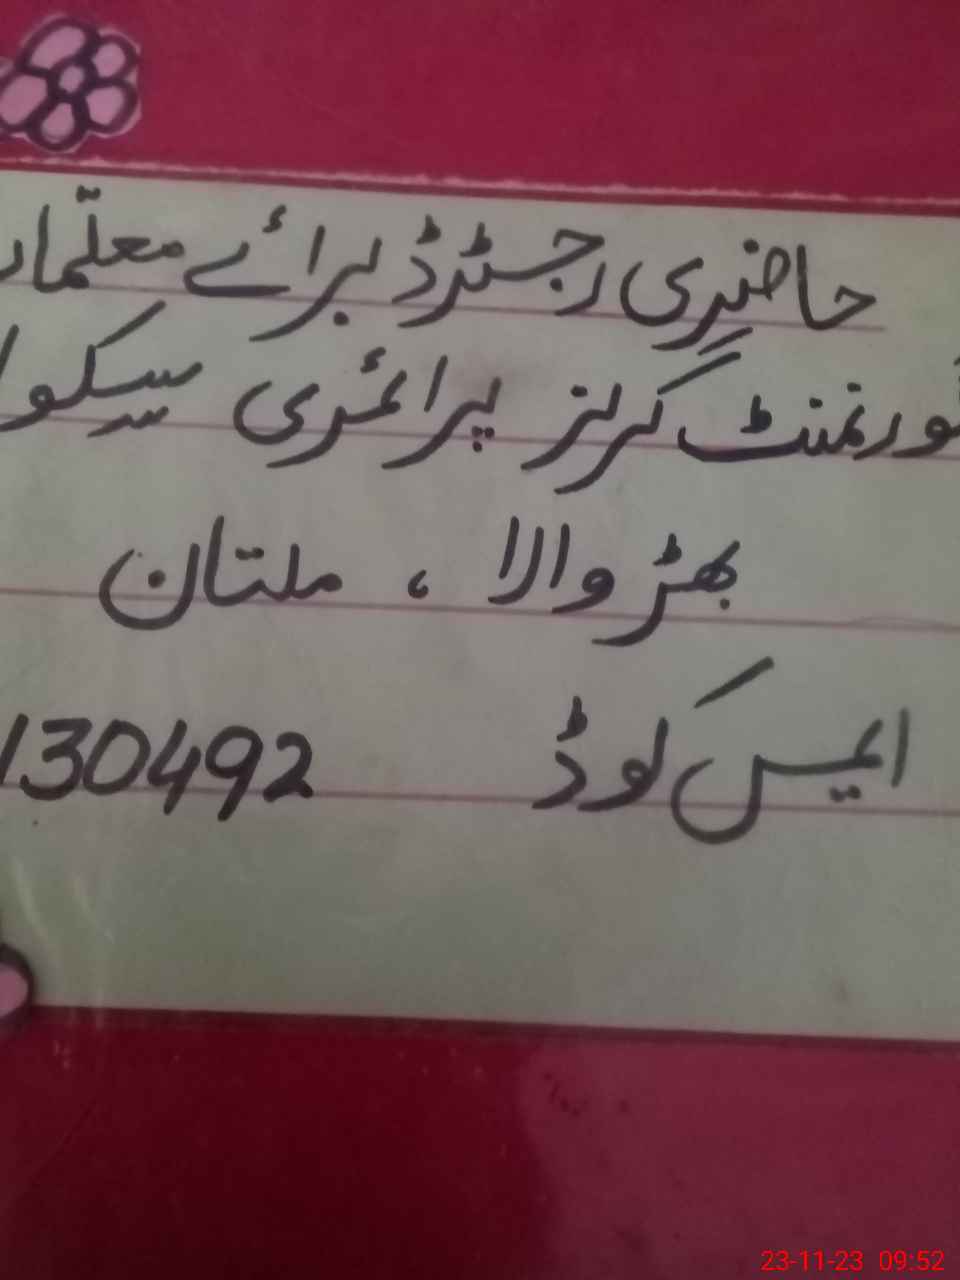 حاضری رجسٹرڈ برائے معلما
گورنمنٹ گرلز پرائمری سیکو
بھڑ والا ، ملتان
ایمس کوڈ 130492
23-11-23 09:52